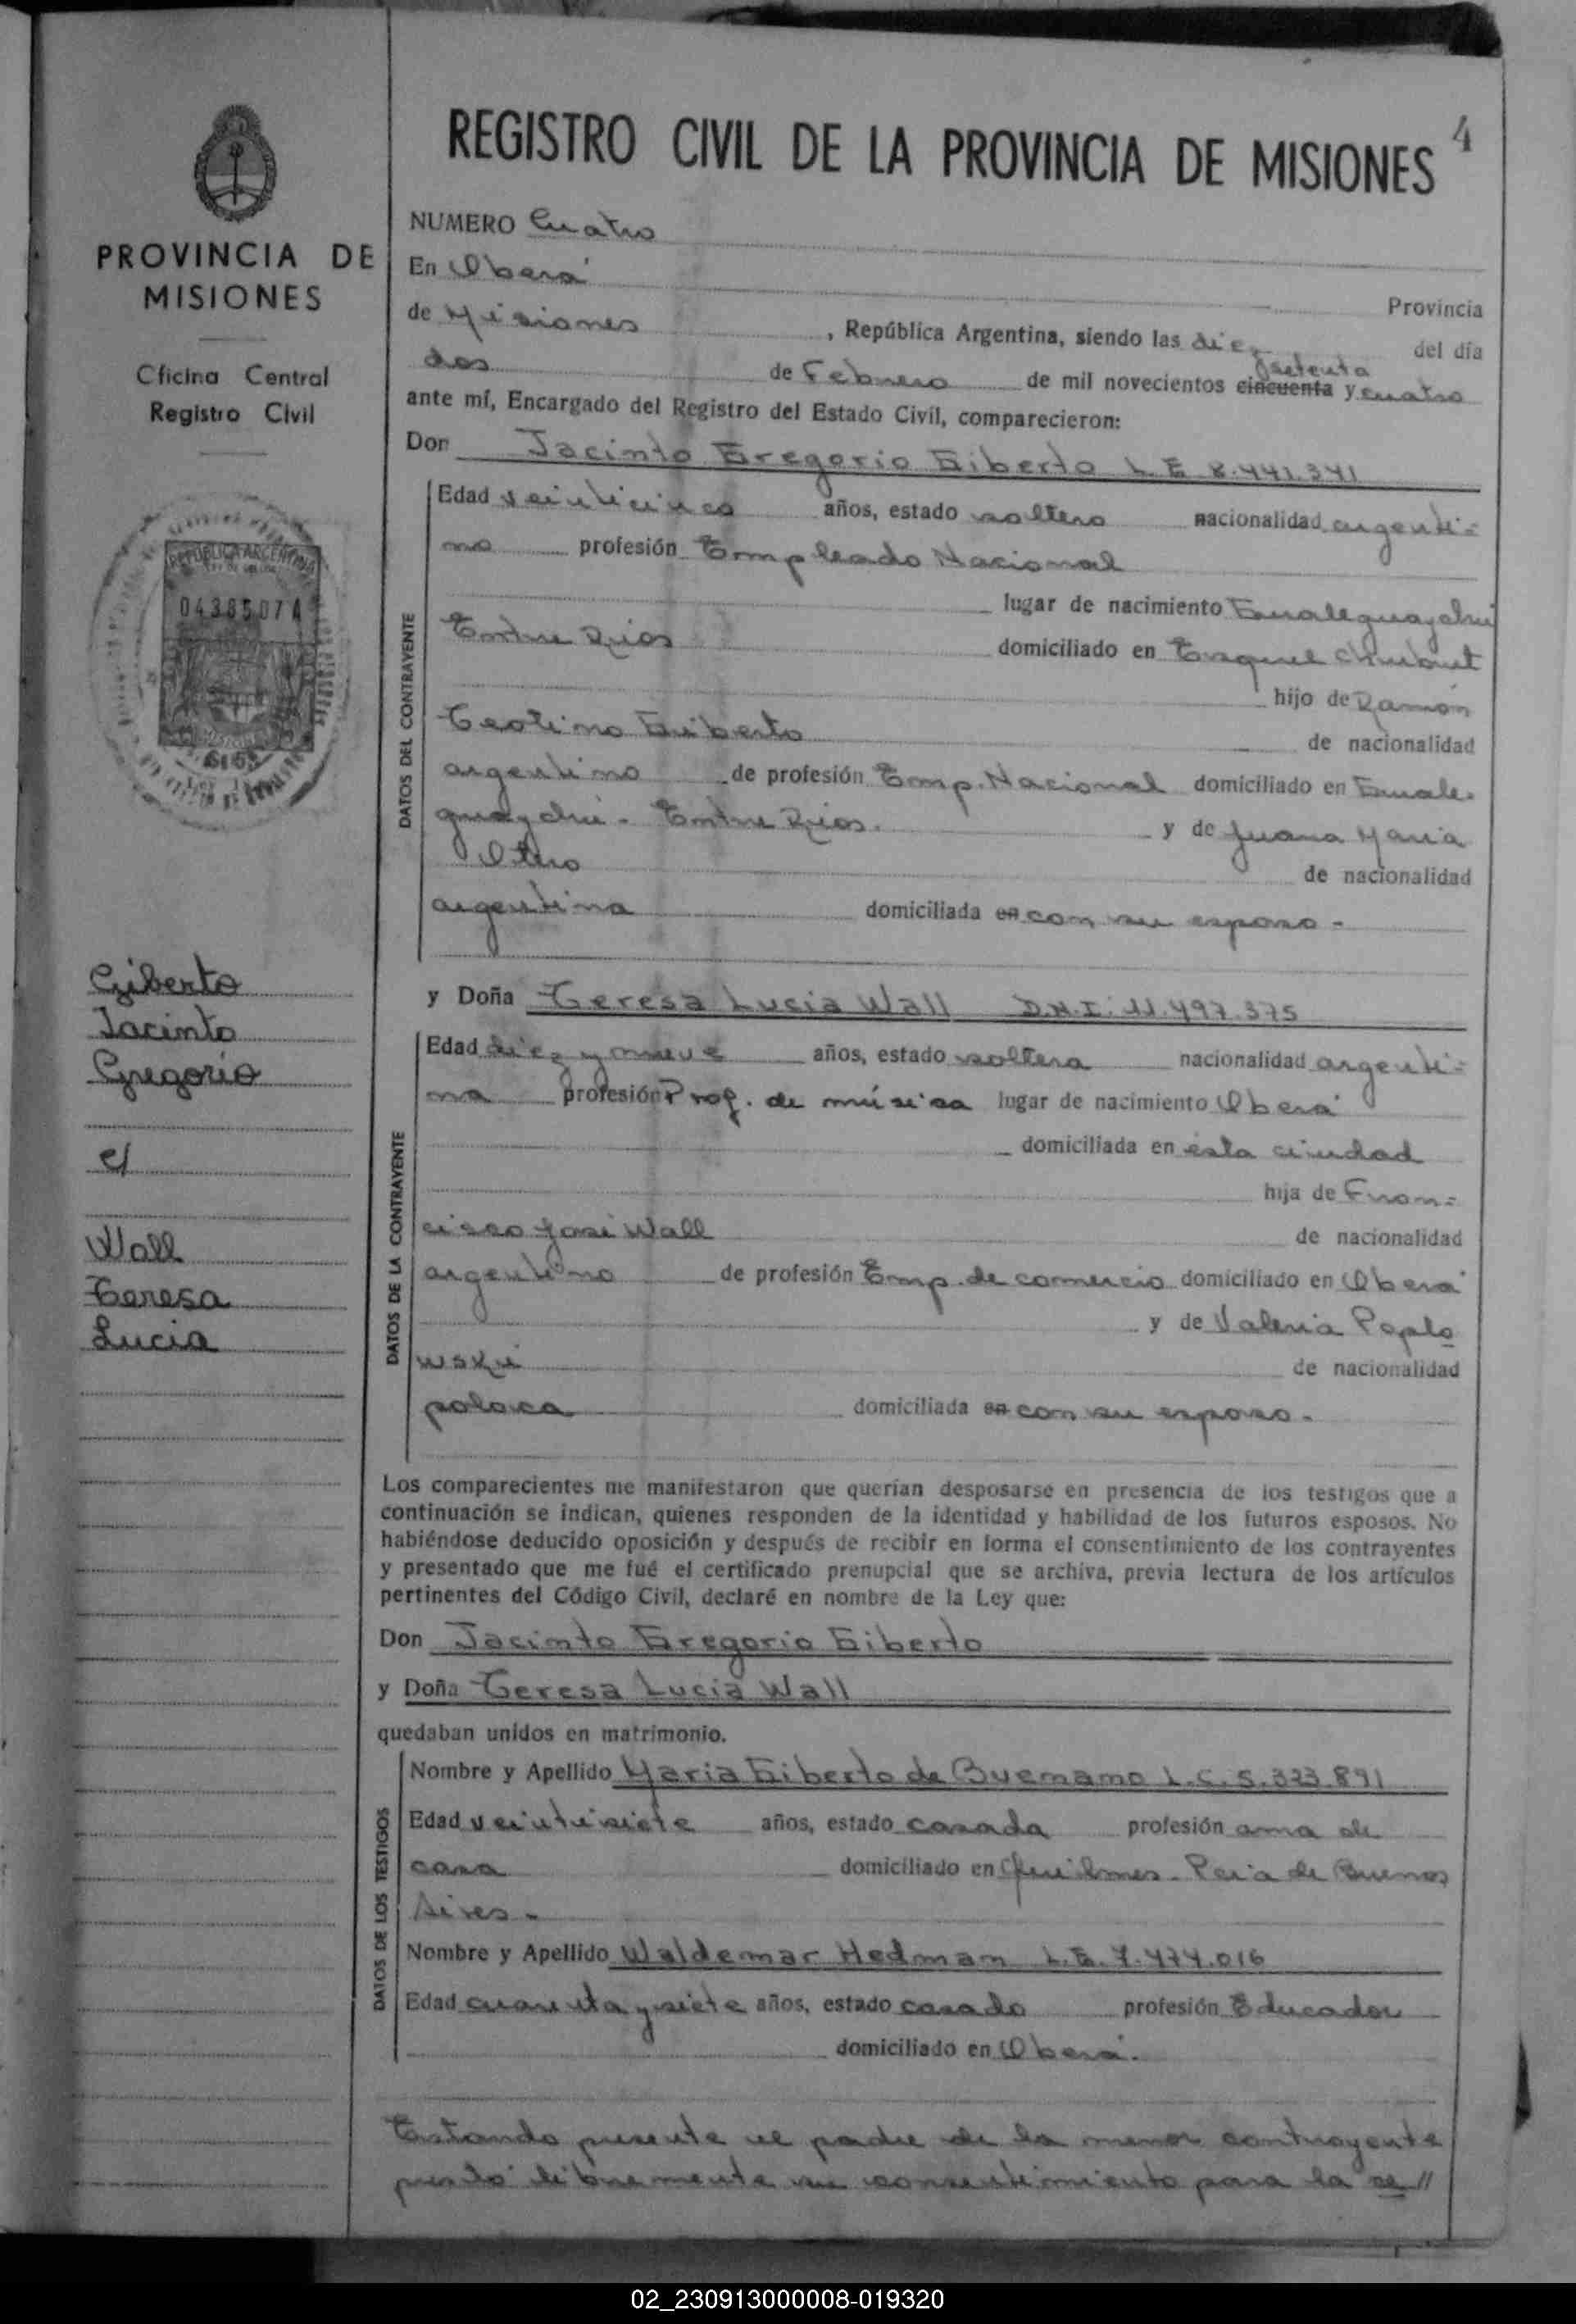 4
REGISTRO CIVIL DE LA PROVINCIA DE MISIONES
PROVINCIA DE
MISIONES
Oficina Central
Registro Civil
REPUBLICA ARGENTINA
04385074
Giberto
Jacinto
Gregorio
c/
Wall
Teresa
Lucia
NUMERO Cuatro
En Oberá Provincia
de Misiones, República Argentina, siendo las diez del día
dos de Febrero de mil novecientos cincuenta setenta y cuatro
ante mí, Encargado del Registro del Estado Civil, comparecieron:
Don Jacinto Gregorio Giberto L E 8.441.341
DATOS DEL CONTRAYENTE
Edad veinticinco años, estado soltero nacionalidad argenti=
no profesión Empleado Nacional
lugar de nacimiento Gualeguaychú
Entre Rios domiciliado en Esquel Chubut
hijo de Ramón
Teotimo Giberto de nacionalidad
argentino de profesión Emp. Nacional domiciliado en Guale-
guaychú - Entre Rios. y de Juana Maria
Otero de nacionalidad
argentina domiciliada en con su esposo -
y Doña Teresa Lucia Wall D.N.I. 11.497.375
DATOS DE LA CONTRAYENTE
Edad diez y nueve años, estado soltera nacionalidad argenti=
na profesión Prof. de música lugar de nacimiento Oberá
domiciliada en esta ciudad
hija de Fran=
cisco José Wall de nacionalidad
argentino de profesión Emp. de comercio domiciliado en Oberá
y de Valeria Poplo
wski de nacionalidad
polaca domiciliada en con su esposo.
Los comparecientes me manifestaron que querían desposarse en presencia de los testigos que a
continuación se indican, quienes responden de la identidad y habilidad de los futuros esposos. No
habiéndose deducido oposición y después de recibir en forma el consentimiento de los contrayentes
y presentado que me fué el certificado prenupcial que se archiva, previa lectura de los artículos
pertinentes del Código Civil, declaré en nombre de la Ley que:
Don Jacinto Gregorio Giberto
y Doña Teresa Lucia Wall
quedaban unidos en matrimonio.
DATOS DE LOS TESTIGOS
Nombre y Apellido Maria Giberto de Buemamo L.C. 5.323.891
Edad veintisiete años, estado casada profesión ama de
casa domiciliado en Quilmes - Pcia de Buenos
Aires -
Nombre y Apellido Waldemar Hedman L.E. 7.474.016
Edad cuarenta y siete años, estado casado profesión Educador
domiciliado en Oberá.
Estando presente el padre de la menor contrayente
prestó libremente su consentimiento para la ce//
02_230913000008-019320